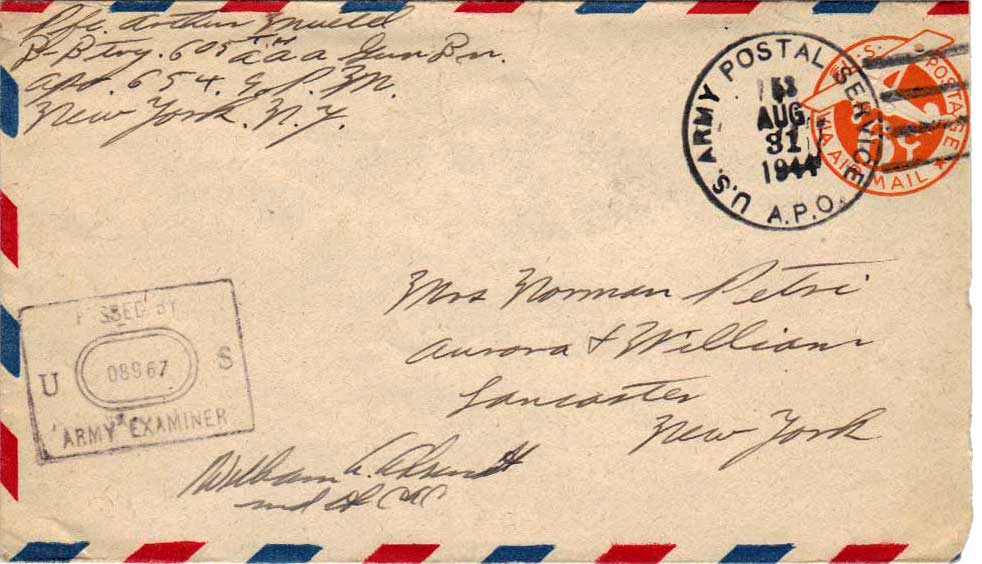 Pfc. Arthur
B Btry. 605th a a a Gun Bn.
apo. 654. % P. M.
New York. N. Y.
U.S. ARMY POSTAL SERVICE
AUG
31
1944
A.P.O.
U.S. POSTAGE
VIA AIR MAIL
6¢
Mrs Norman Petri
Aurora & William
Lancaster
New York
PASSED BY
U 08967 S
ARMY EXAMINER
William